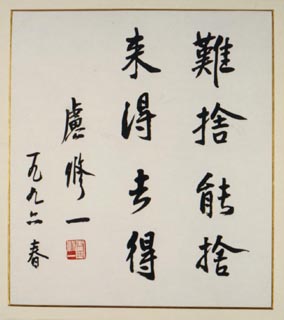 難捨能捨
来得去得
盧修一
一九九六春